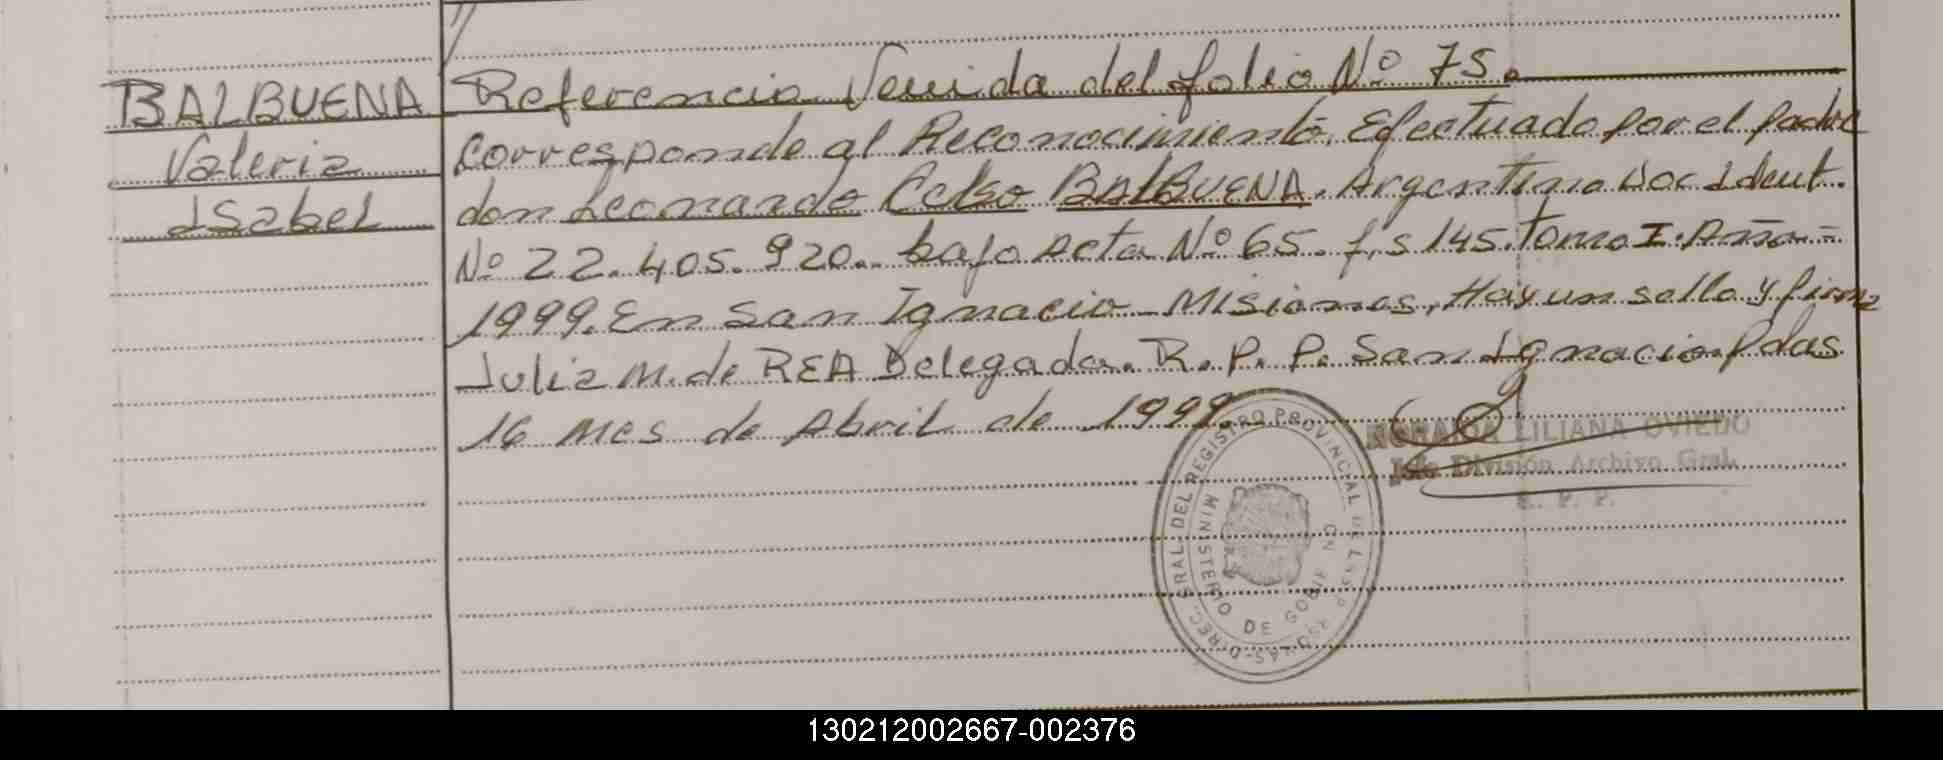 BALBUENA Referencia Venida del folio Nº 75.
Valeria Corresponde al Reconocimiento, Efectuado por el padre
Isabel don Leonardo Celso BALBUENA, Argentino Doc Ident.
Nº 22.405.920. bajo Acta Nº 65. f,s 145. Tomo I. Año =
1999. En San Ignacio - Misiones, Hay un sello y firma
Julia M. de REA Delegada. R. P. P. San Ignacio. Pdas
16 Mes de Abril de 1999
LILIANA OVIEDO
Jefe División Archivo Gral.
R. P. P.
DIREC. GRAL. DEL REGISTRO PROVINCIAL DE LAS PERSONAS-
MINISTERIO DE GOBIERNO
130212002667-002376